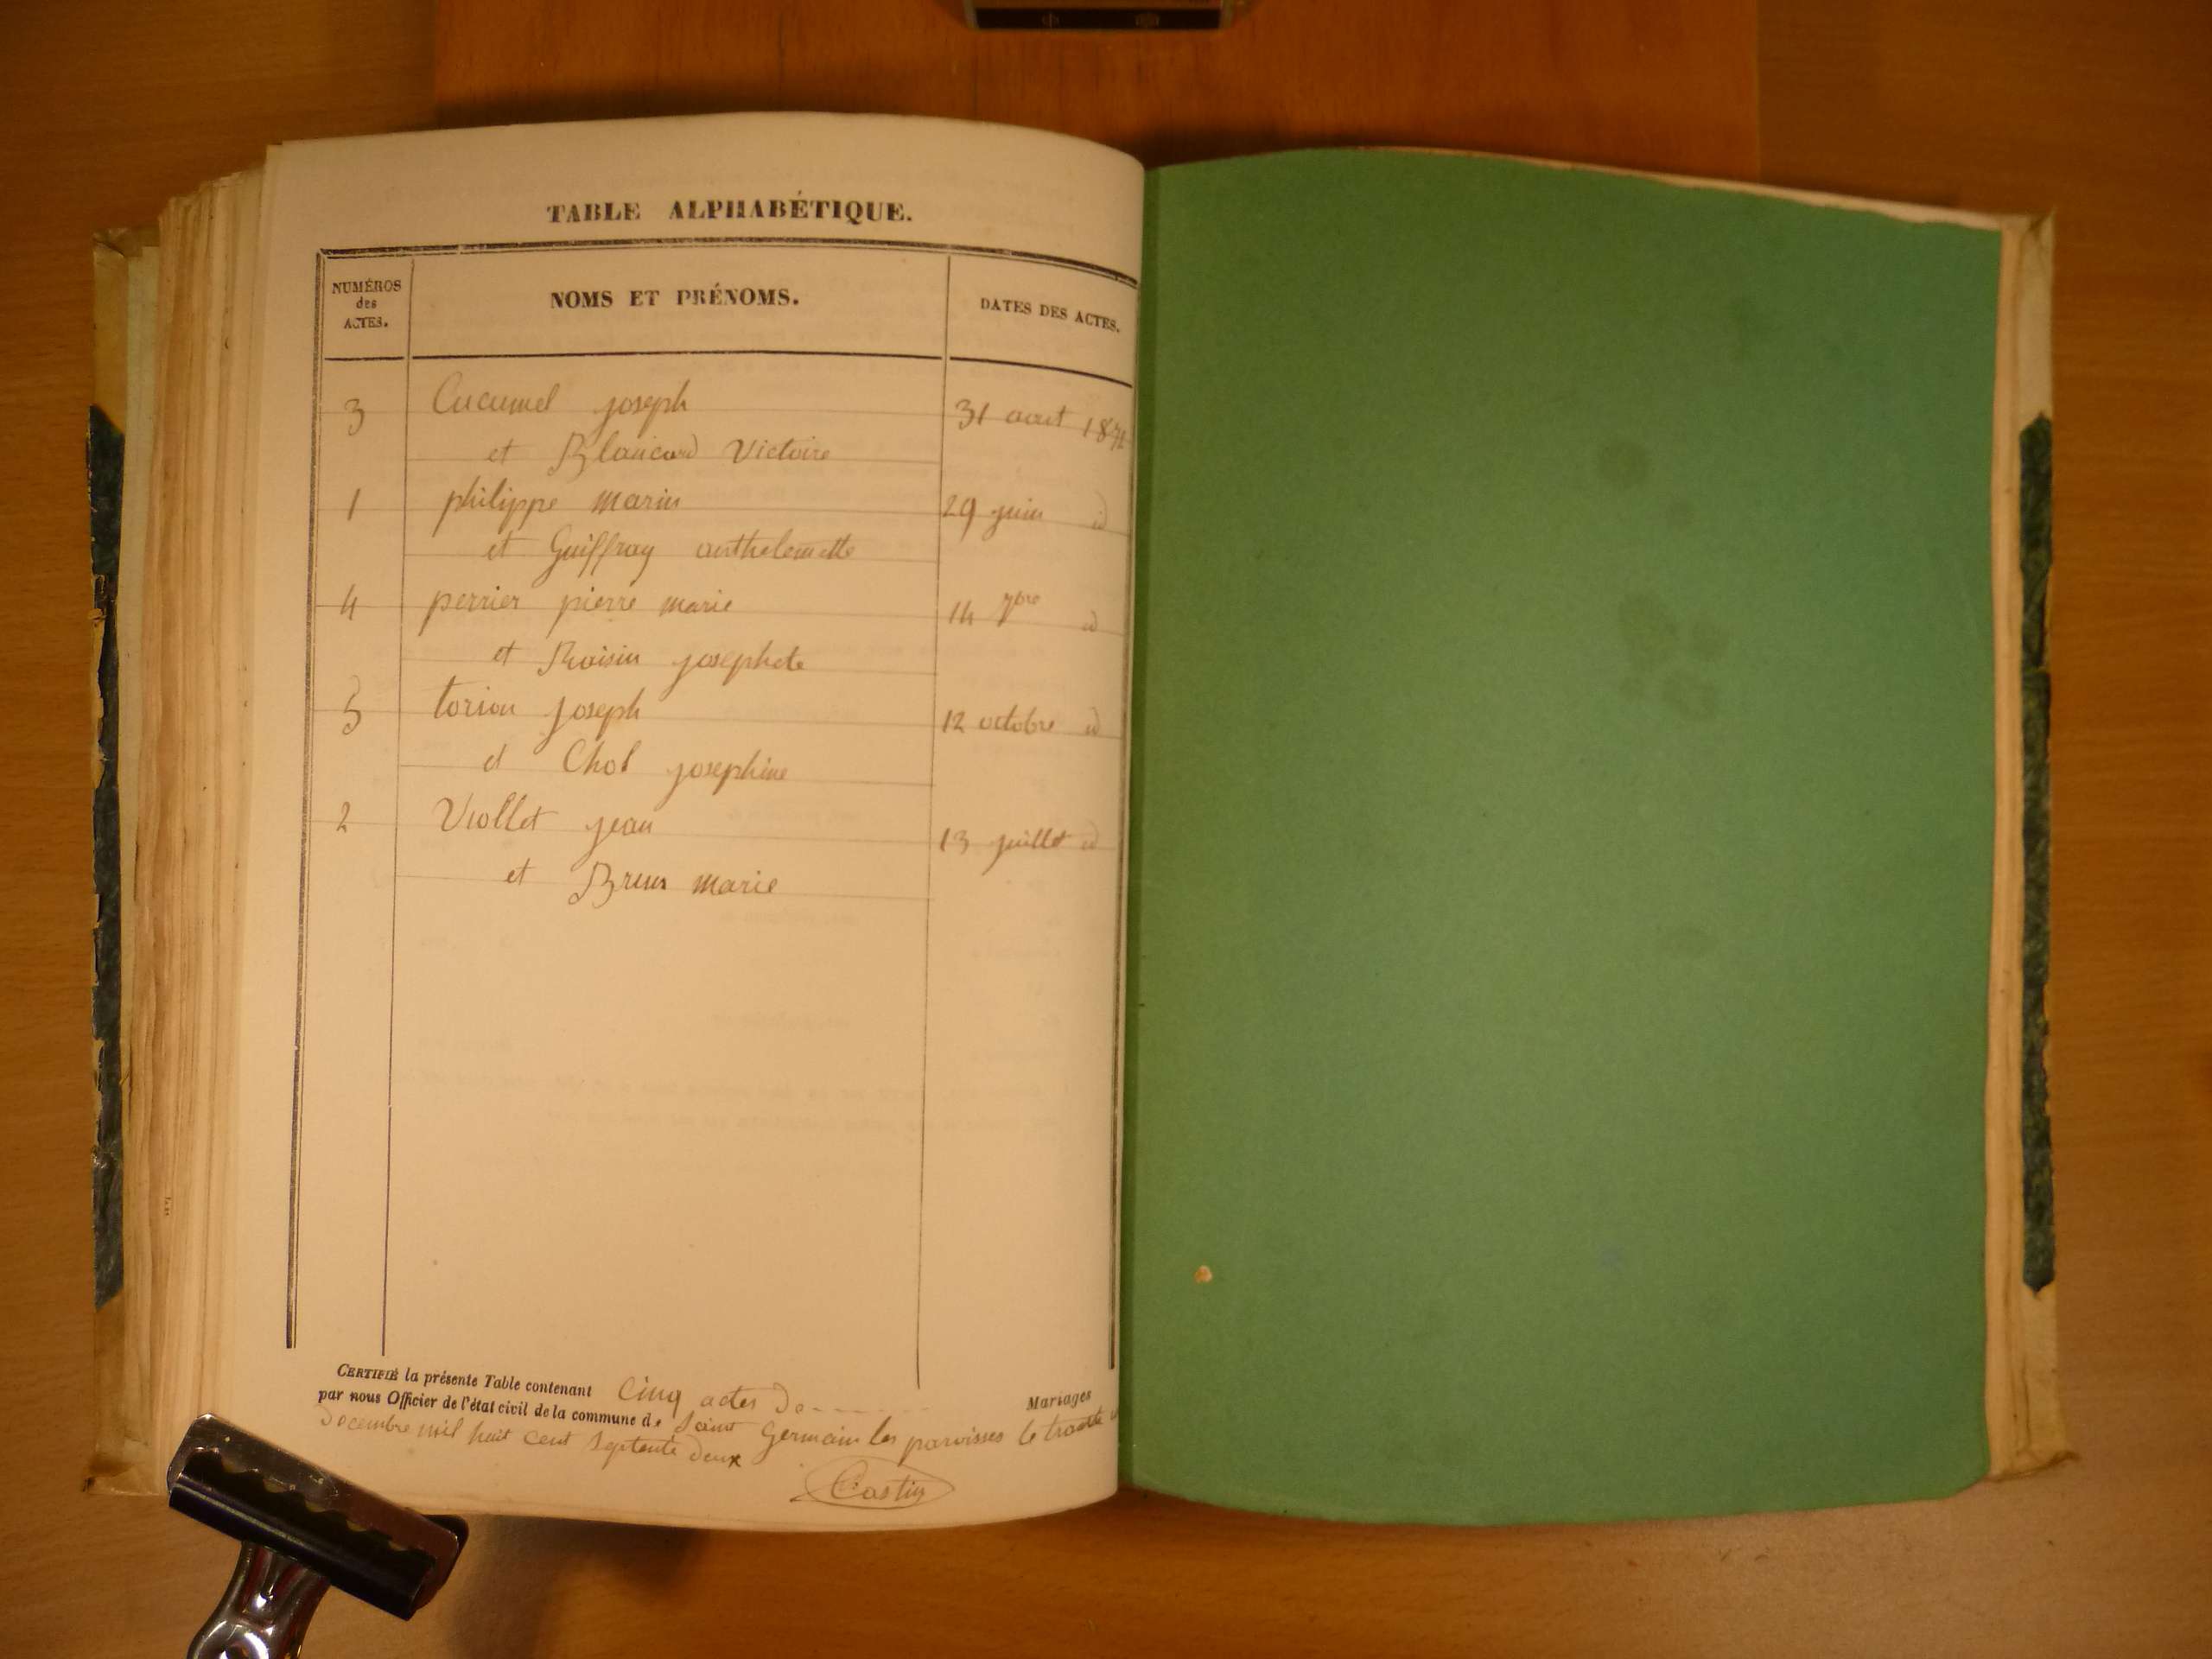 TABLE ALPHABÉTIQUE.
NUMÉROS
des
ACTES.
NOMS ET PRÉNOMS.
DATES DES ACTES.
3 Cucumel joseph 31 aout 187
et Blancard Victoire
1 philippe marin 29 juin id
et Guiffray anthelemette
4 perrier pierre marie 14 7bre id
et Raisin josephete
5 torion joseph 12 octobre id
et Chol josephine
2 Viollet jean 13 juillet id
et Brun marie
CERTIFIÉ la présente Table contenant Cinq actes de Mariages
par nous Officier de l'état civil de la commune de Saint Germain les paroisses le trente
Decembre mil huit cent septente deux
Castin